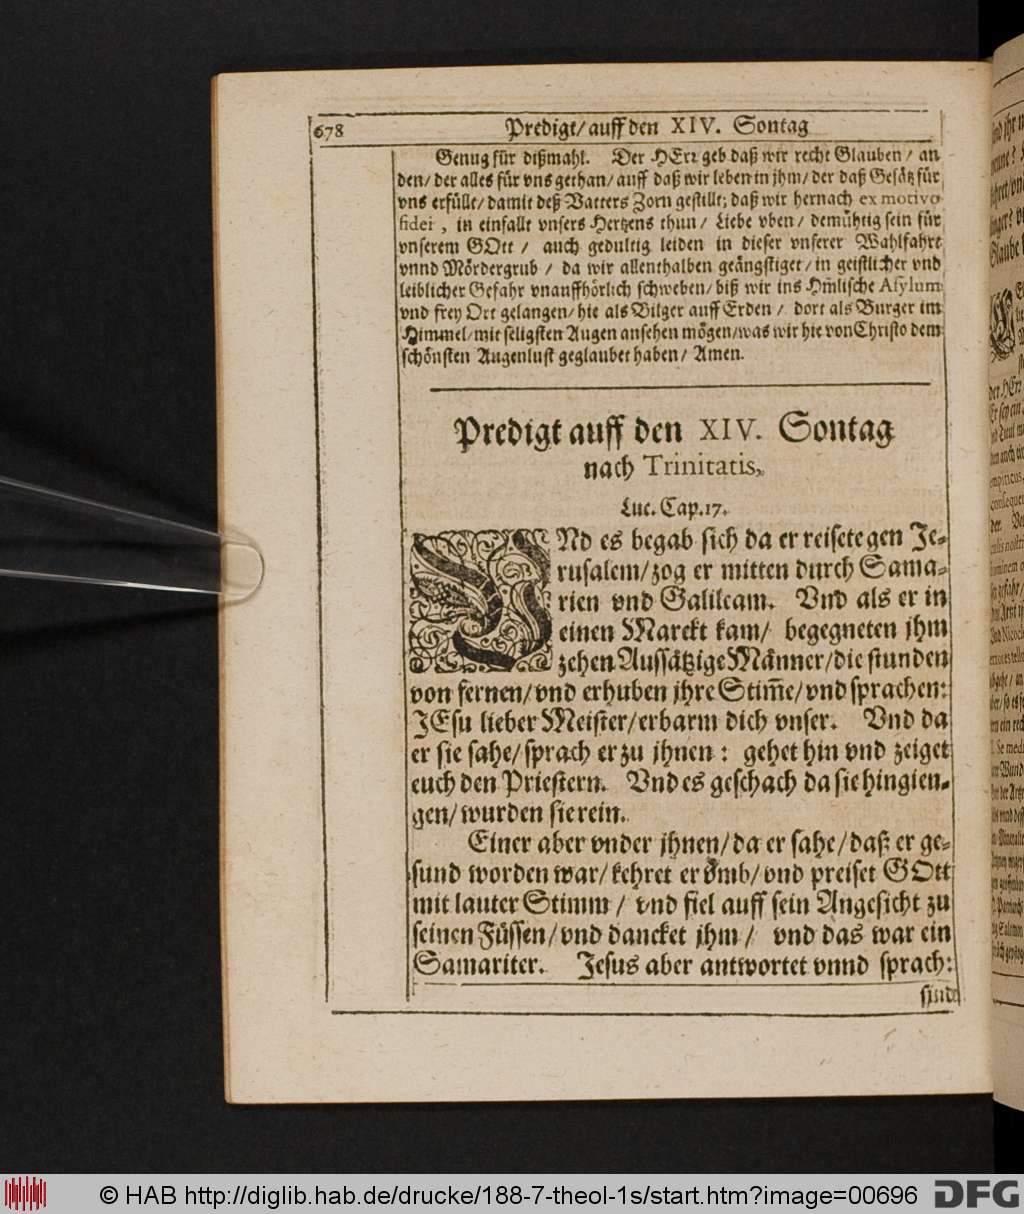 678 Predigt/ auff den XIV. Sontag
Genug für dißmahl. Der HErr geb daß wir recht Glauben/ an
den/ der alles für vns gethan/ auff daß wir leben in jhm/ der daß Gesätz für
vns erfüllt/ damit deß Vatters Zorn gestillt; daß wir hernach ex motivo
fidei, in einfallt vnsers Hertzens thun/ Liebe vben/ demühtig sein für
vnserem GOtt/ auch gedultig leiden in dieser vnserer Wahlfahrt
vnnd Mördergrub/ da wir allenthalben geängstiget/ in geistlicher vnd
leiblicher Gefahr vnauffhörlich schweben/ biß wir ins Him̃lische Asylum
vnd frey Ort gelangen/ hie als Bilger auff Erden/ dort als Burger im
Himmel/ mit seligsten Augen ansehen mögen/ was wir hie von Christo dem
schönsten Augenlust geglaubet haben/ Amen.
Predigt auff den XIV. Sontag
nach Trinitatis,
Luc. Cap. 17.
VNd es begab sich da er reisete gen Je-
rusalem/ zog er mitten durch Sama-
rien vnd Galileam. Vnd als er in
einen Marckt kam/ begegneten jhm
zehen Aussätzige Männer/ die stunden
von fernen/ vnd erhuben jhre Stim̃e/ vnd sprachen:
JEsu lieber Meister/ erbarm dich vnser. Vnd da
er sie sahe/ sprach er zu jhnen: gehet hin vnd zeiget
euch den Priestern. Vnd es geschach da sie hingien-
gen/ wurden sie rein.
Einer aber vnder jhnen/ da er sahe/ daß er ge-
sund worden war/ kehret er vmb/ vnd preiset GOtt
mit lauter Stimm/ vnd fiel auff sein Angesicht zu
seinen Füssen/ vnd dancket jhm/ vnd das war ein
Samariter. Jesus aber antwortet vnnd sprach:
sind
© HAB http://diglib.hab.de/drucke/188-7-theol-1s/start.htm?image=00696 DFG